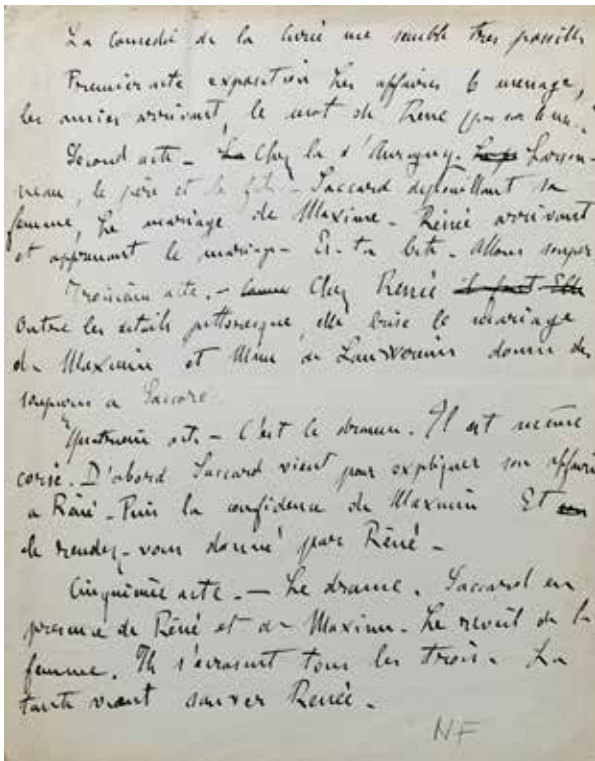 La comedie de la Curée me semble tres possible
Premier acte exposition Les affaires le menage,
les amies arrivant, le mot de Renée
Second acte - La Chez la d'Aurigny. Larson-
neau, le père et le fils - Saccard depouillant sa
femme, Le mariage de Maxime - Réné arrivant
et apprenant le mariage - Es-tu bete - Allons souper
Troisieme acte. - Chez Renée il faut Elle
Outre les details pittoresque, elle brise le mariage
de Maxime et Mme de Lauwerens donne des
soupcons a Saccard.
Quatrieme acte - C'est le drame. Il est même
corsé. D'abord Saccard vient pour expliquer son affaire
a Réné - Puis la confidence de Maxime Et
le rendez-vous donné par Réné -
Cinquième acte. - Le drame. Saccard en
presence de Réné et de Maxime - Le reveil de la
femme. Ils s'ecrasent tous les trois. La
tante vient sauver Renée.
NF